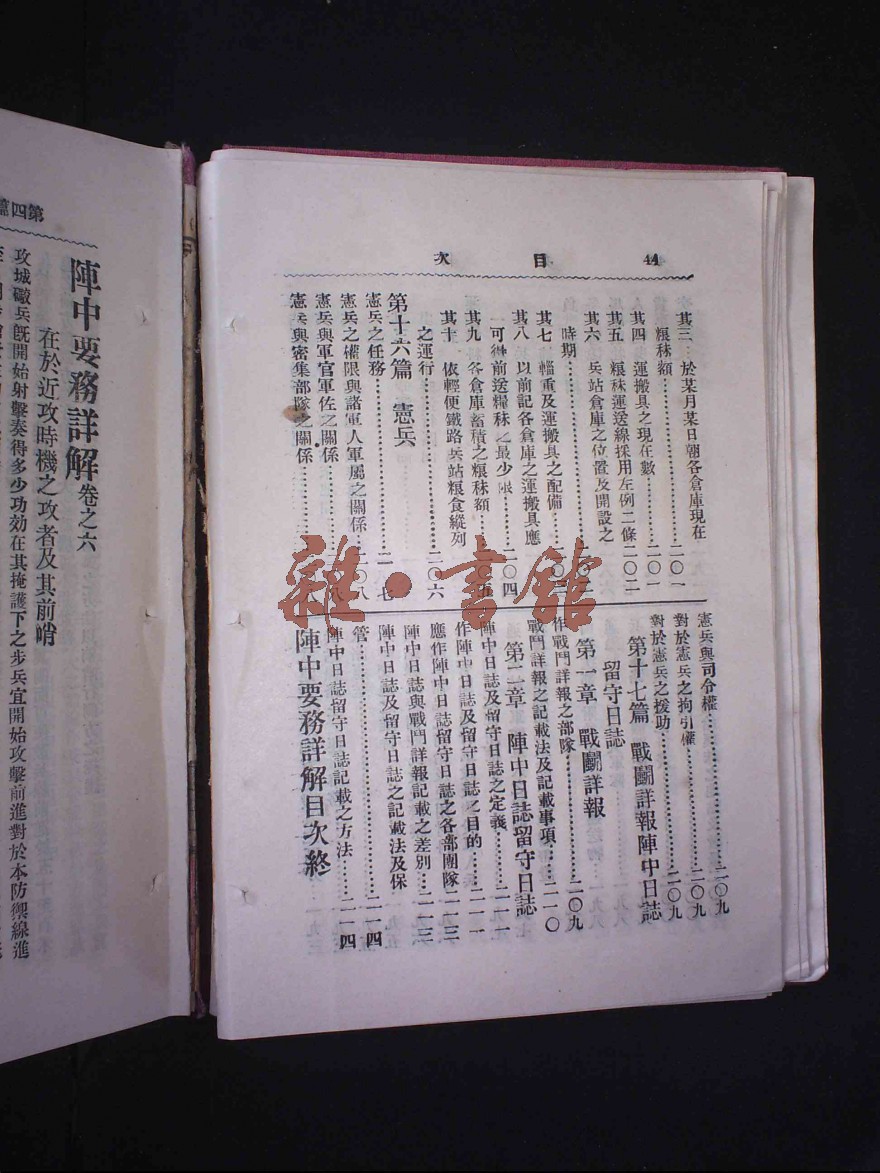 44
目次
其三 於某月某日朝各倉庫現在
糧秣額……二〇一
其四 運搬具之現在數……二〇一
其五 糧秣運送線採用左例二條……二〇二
其六 兵站倉庫之位置及開設之
時期
其七 輜重及運搬具之配備
其八 以前記各倉庫之運搬具應
可得前送糧秣之最少限……二〇四
其九 各倉庫蓄積之糧秣額
其十 依輕便鐵路兵站糧食縱列
之運行……二〇六
第十六篇 憲兵
憲兵之任務
憲兵之權限與諸軍人軍屬之關係
憲兵與軍官軍佐之關係
憲兵與密集部隊之關係
憲兵與司令權……二〇九
對於憲兵之拘引權……二〇九
對於憲兵之援助……二〇九
第十七篇 戰鬭詳報陣中日誌
留守日誌
第一章 戰鬭詳報
作戰鬥詳報之部隊……二〇九
戰鬥詳報之記載法及記載事項……二一〇
第二章 陣中日誌留守日誌
陣中日誌及留守日誌之定義……二一一
作陣中日誌及留守日誌之目的……二一一
應作陣中日誌留守日誌之各部團隊……二一二
陣中日誌與戰鬥詳報記載之差別……二一三
陣中日誌及留守日誌之記載法及保
管……二一四
陣中日誌留守日誌記載之方法……二一四
陣中要務詳解目次終
雜·書館
第四篇
陣中要務詳解卷之六
在於近攻時機之攻者及其前哨
攻城礮兵既開始射擊奏得多少功効在其掩護下之步兵宜開始攻擊前進對於本防禦線進